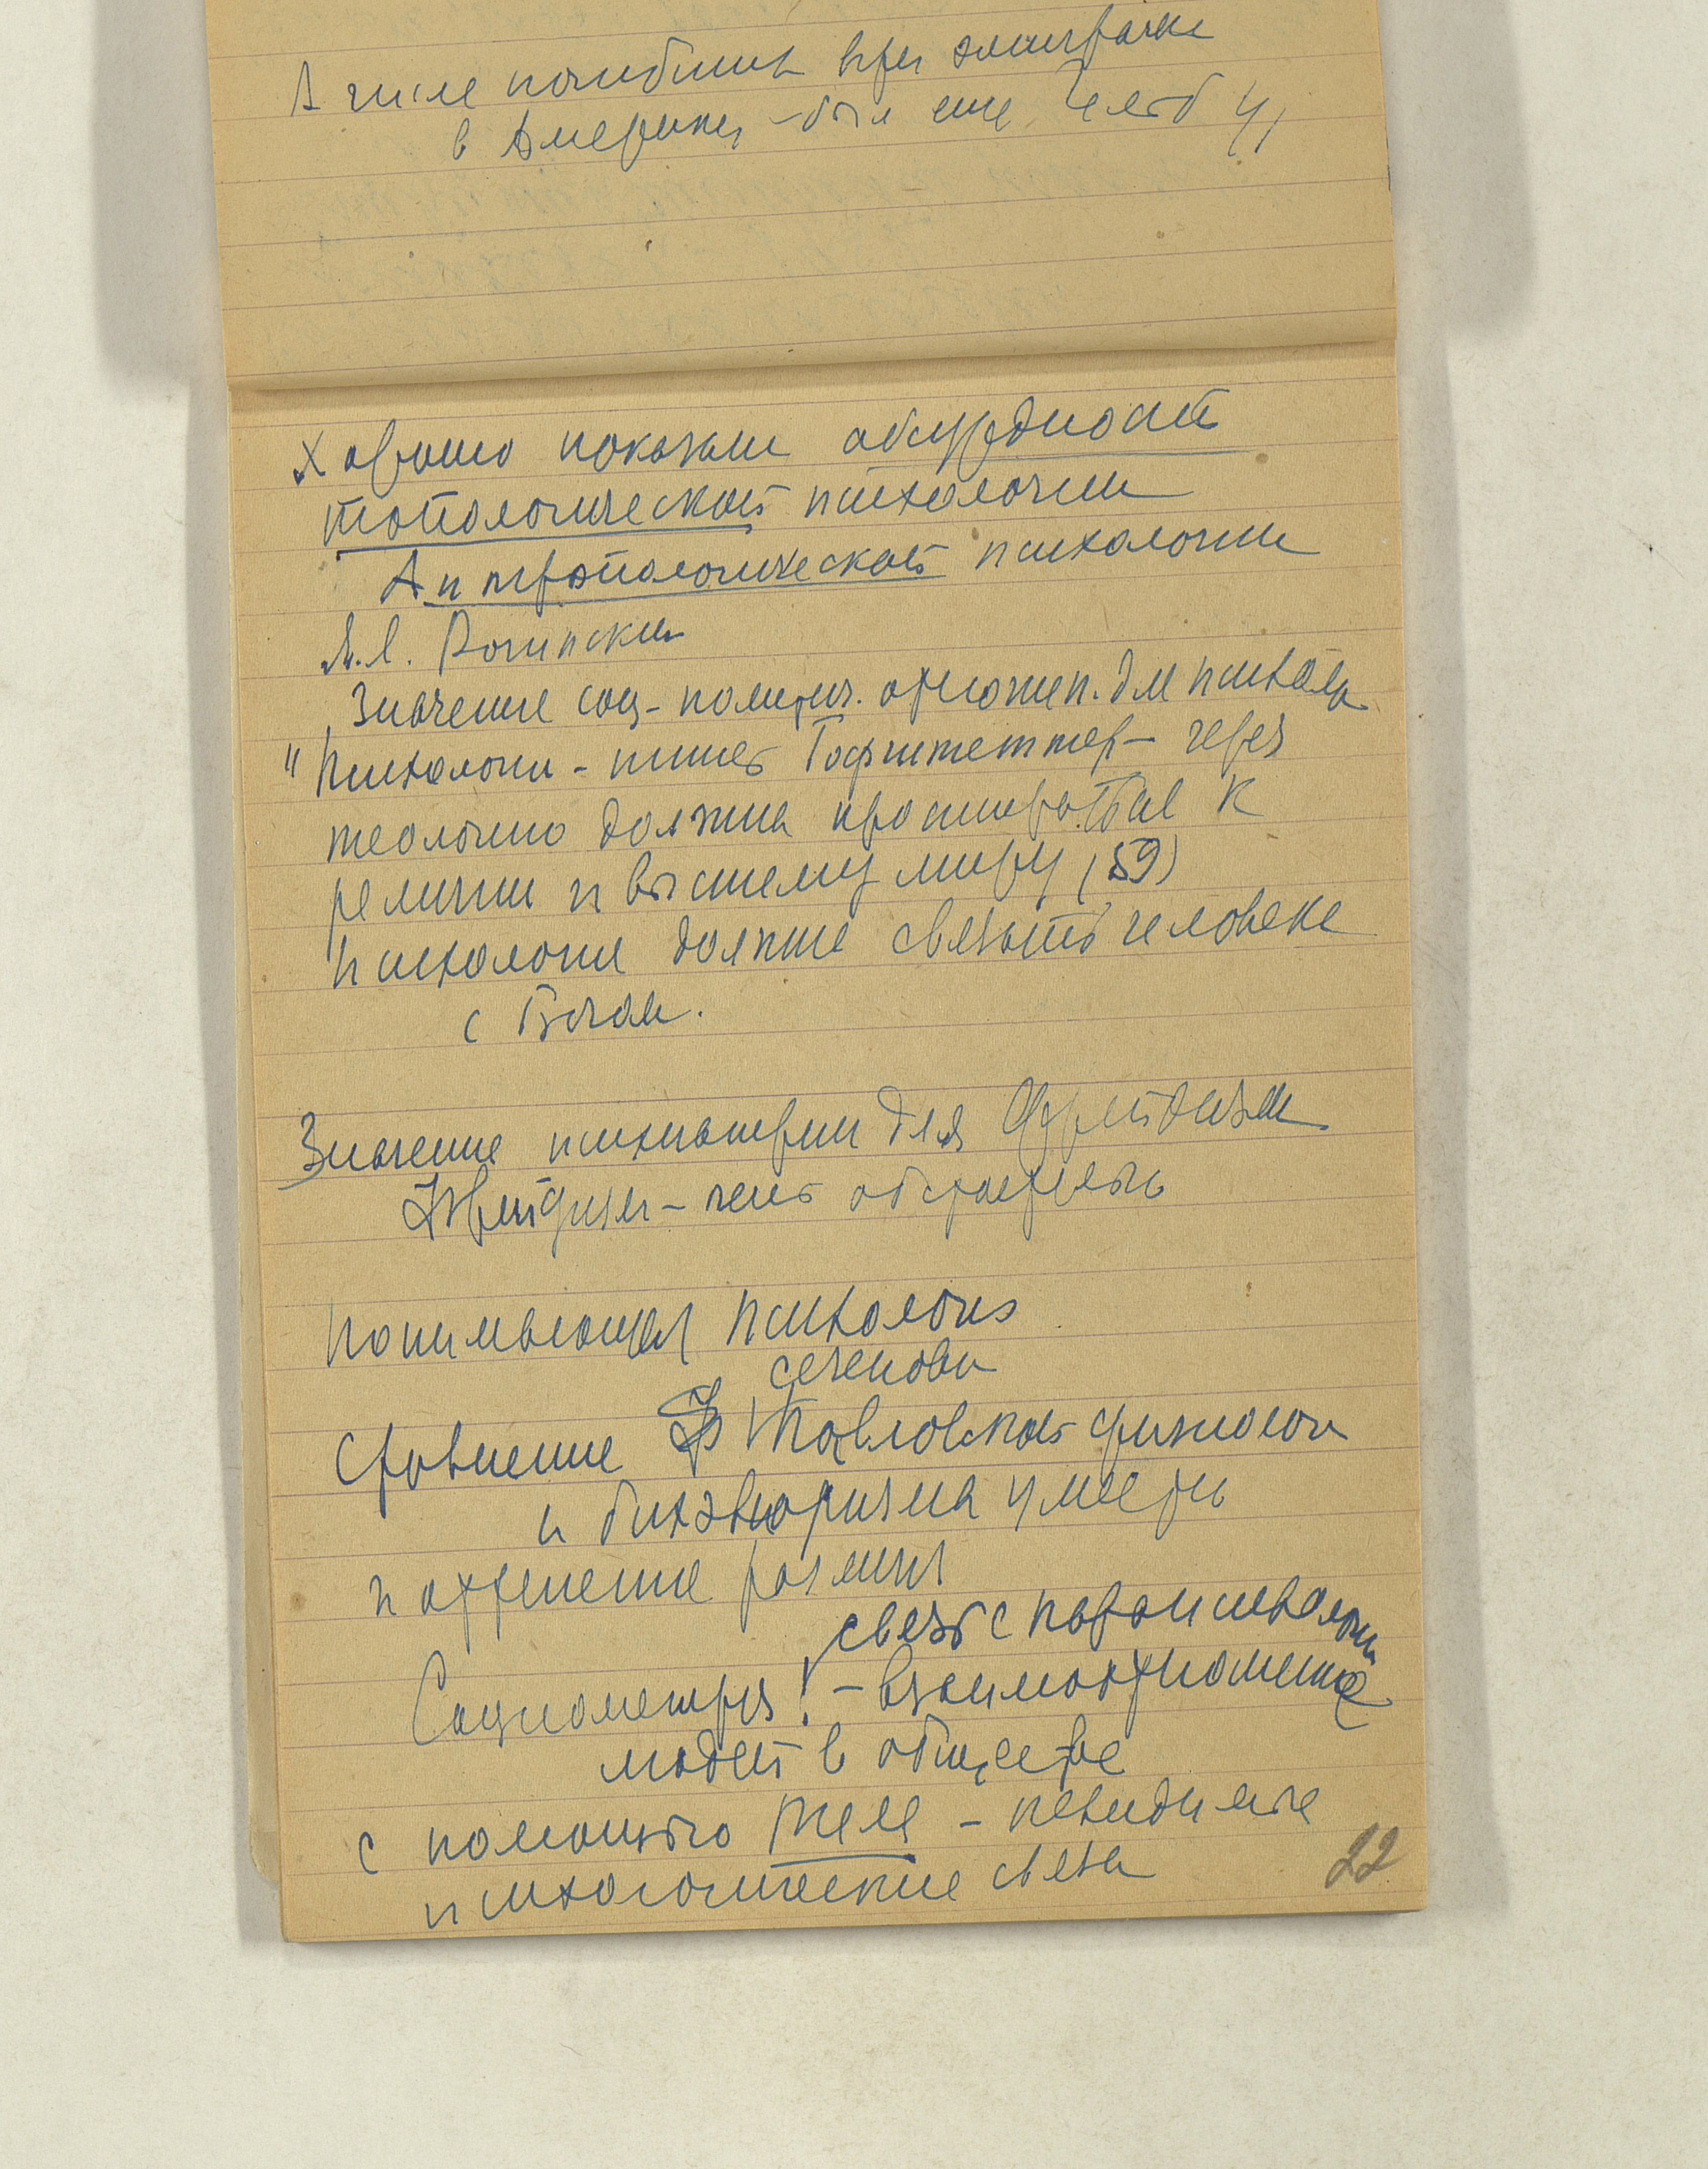 А числе погибших врем эмиграции
в Америку – был еще
Хорошо показали абсурдность
топологической психологии
Антропологической психологии
Я.Я. Рогинский
Значение соц-политич. отношен. для психоло
"Психология – пишет Гофштеттер – через
теологию должна простираться к
религии и высшему миру (59)
Психология должна связыть человека
с Богом.
Значение психиатрии для Фрейдизма
Фрейдизм –
Понимающая психология
Сеченова
Сравнение и Павловской физиологи
и бихэвиоризма уместн
и отутнение
связь с парапсихологии
Социометрия! – взаимоотношение
людей в обществе
с помощью теле – невидимые
психологические связи
22